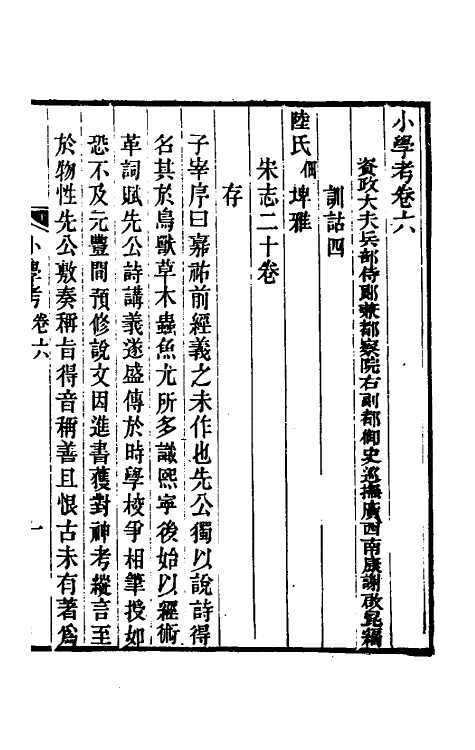 小學考卷六
資政大夫兵部侍郎兼都察院右副都御史巡撫廣西南康謝啟昆編
訓詁四
陸氏佃埤雅
宋志二十卷
存
子宰序曰嘉祐前經義之未作也先公獨以說詩得
名其於鳥獸草木蟲魚尤所多識熙寧後始以經術
革詞賦先公詩講義遂盛傳於時學校爭相筆授如
恐不及元豐間預修說文因進書獲對神考縱言至
於物性先公敷奏稱旨得音稱善且恨古未有著爲
小學考卷六
一